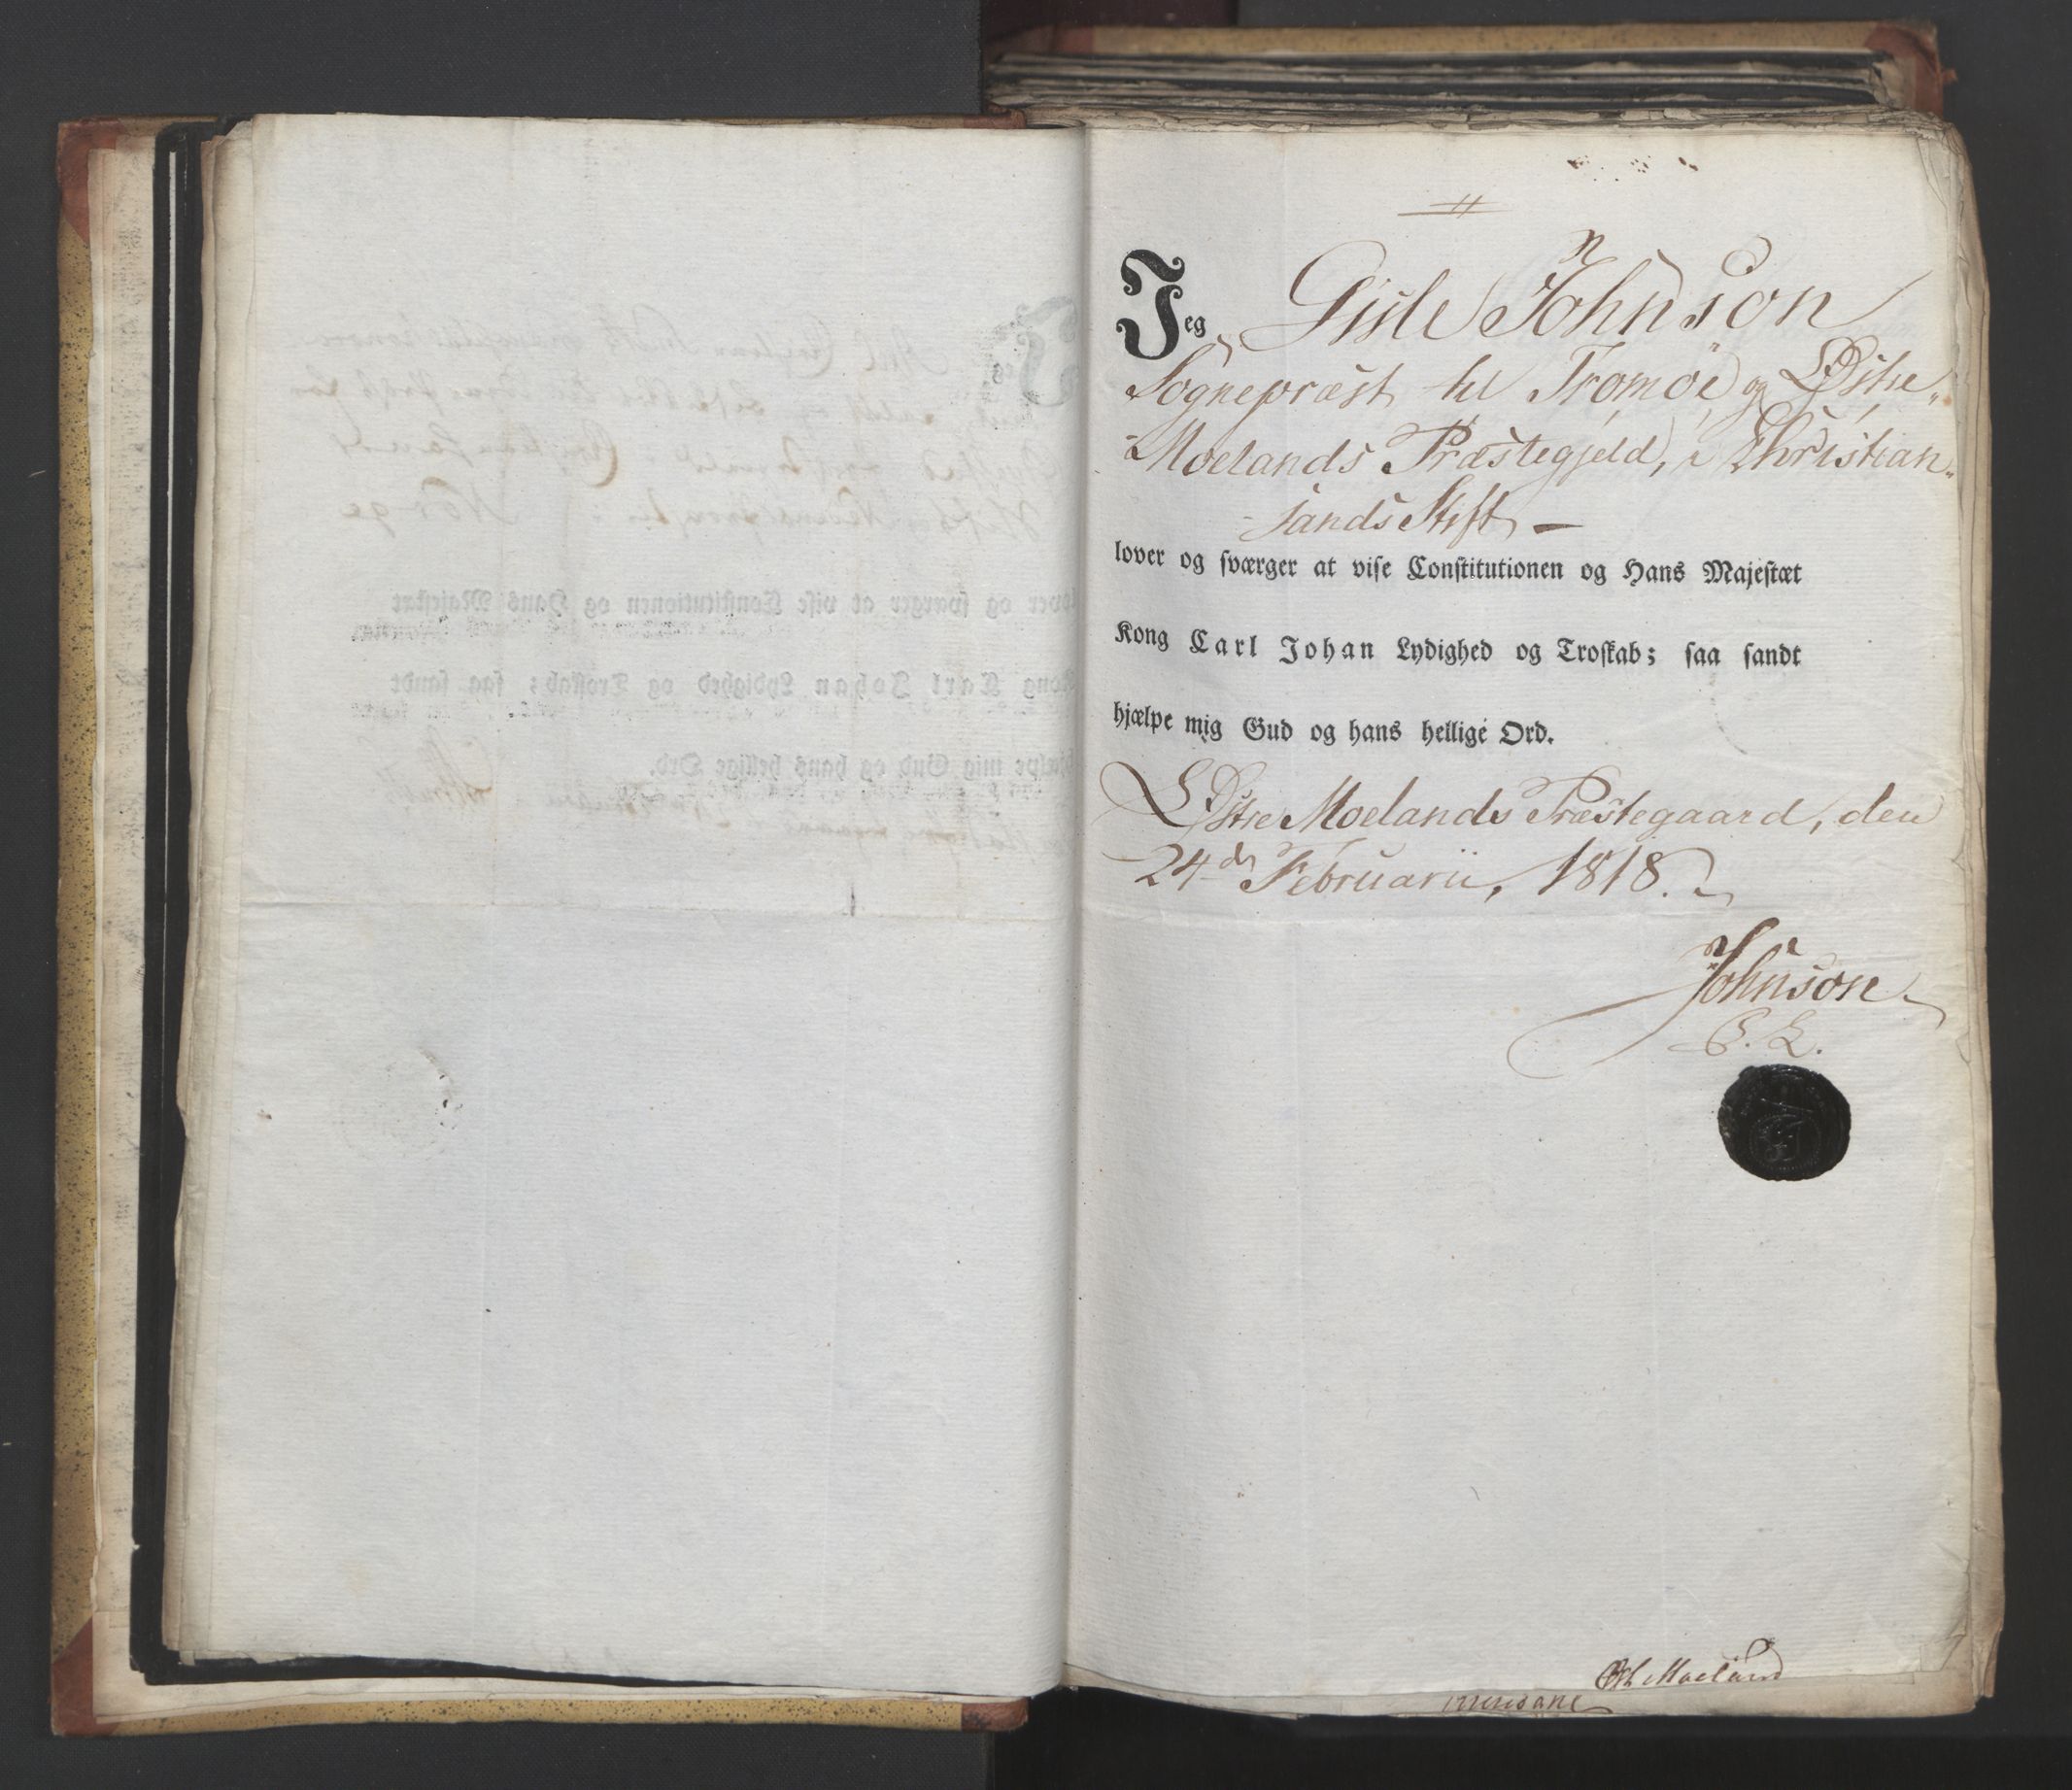 Jeg Gisle Johnson
Sognepræst til Tromöe og Østre„
Moelands Præstegjeld, i Christian„
sands Stift, —
lover og sværger at vise Constitutionen og Hans Majestæt
Kong Carl Johan Lydighed og Troskab; saa sandt
hjælpe mig Gud og hans hellige Ord.
Østre Moelands Præstegaard, den
24de Februarii, 1818.
Johnson
Moeland